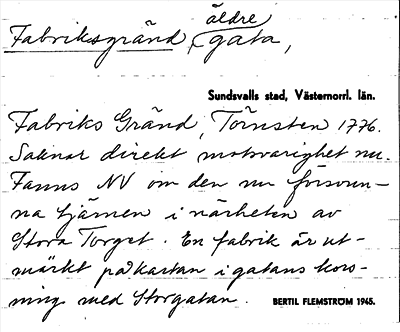 äldre
Fabriksgränd, gata,
Sundsvalls stad, Västernorrl. län.
Fabriks Gränd, Törnsten 1776.
Saknar direkt motsvarighet nu.
Fanns NV om den nu försvun-
na tjärnen i närheten av
Stora Torget. En fabrik är ut-
märkt på kartan i gatans kors-
ning med Storgatan.
BERTIL FLEMSTRÖM 1965.